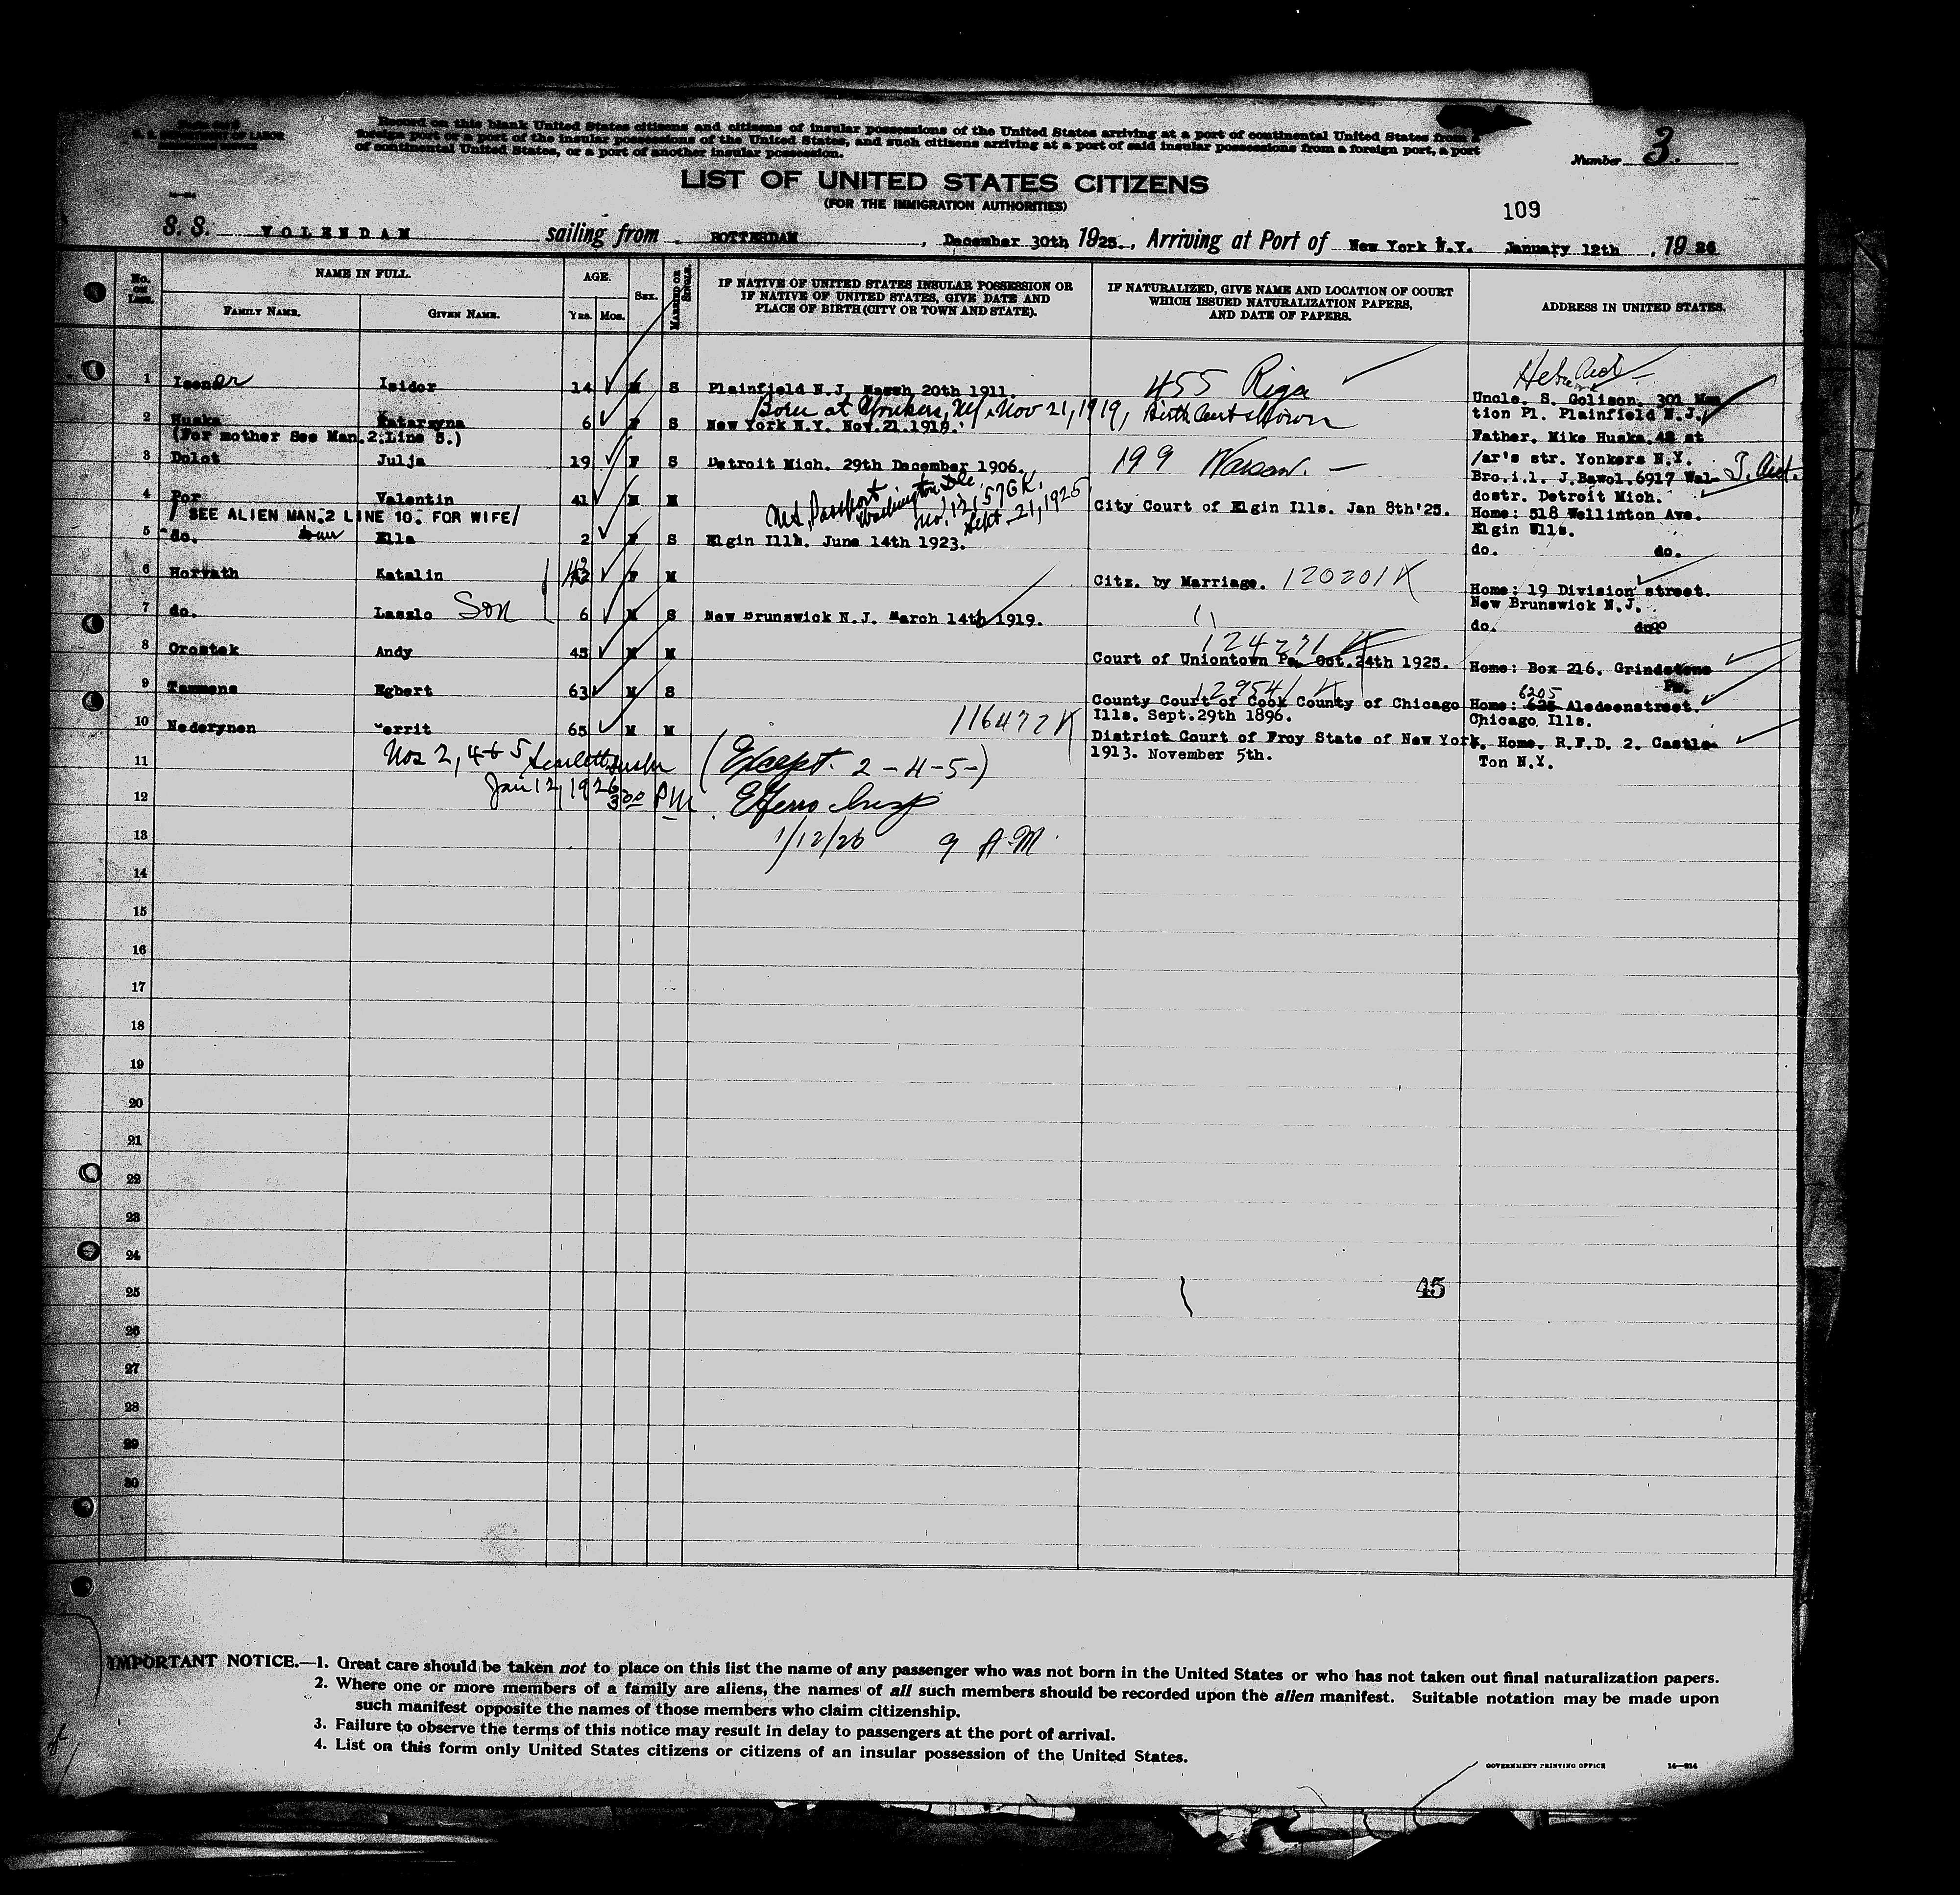 U. S. DEPARTMENT OF LABOR
IMMIGRATION SERVICE
Record on this blank United States citizens and citizens of insular possessions of the United States arriving at a port of continental United States from a
foreign port or a port of the insular possessions of the United States, and such citizens arriving at a port of said insular possessions from a foreign port, a port
of continental United States, or a port of another insular possession.
Number 3.
LIST OF UNITED STATES CITIZENS
(FOR THE IMMIGRATION AUTHORITIES)
109
S. S. VOLENDAM sailing from ROTTERDAM, December 30th 1925., Arriving at Port of New York N.Y. January 12th, 1926
No. on List.
NAME IN FULL.
FAMILY NAME. GIVEN NAME.
AGE.
Yrs. Mos.
Sex.
MARRIED OR SINGLE.
IF NATIVE OF UNITED STATES INSULAR POSSESSION OR
IF NATIVE OF UNITED STATES, GIVE DATE AND
PLACE OF BIRTH (CITY OR TOWN AND STATE).
IF NATURALIZED, GIVE NAME AND LOCATION OF COURT
WHICH ISSUED NATURALIZATION PAPERS,
AND DATE OF PAPERS.
ADDRESS IN UNITED STATES.
1 Isidor 14 M S Plainfield N.J. March 20th 1911. 455 Riga
Uncle. S. Golison. 301 Man
tion Pl. Plainfield N.J.
Born at Yonkers, NY. Nov 21, 1919, Birth Cert shown
2 Huska Katarzyna 6 F S New York N.Y. Nov.21.1919.
(For mother See Man.2.Line 5.)
Father. Mike Huska.42 st
/ar's str. Yonkers N.Y.
3 Dolot Julja 19 F S Detroit Mich. 29th December 1906. 199 Warsaw. —
Bro.i.l. J.Bawol.6917 Wal-
dostr. Detroit Mich.
4 Por Valentin 41 M M City Court of Elgin Ills. Jan 8th'25.
US, Passport Washington DC. No, 12,1576K, Sept. 21, 1925
Home: 518 Wellinton Ave.
Elgin Ills.
/ SEE ALIEN MAN.2 LINE 10. FOR WIFE/
5 do. Ella 2 F S Elgin Ills. June 14th 1923.
do. do.
6 Horvath Katalin 42 F M Citz. by Marriage. 120201 K
Home: 19 Division street.
New Brunswick N.J.
7 do. Laszlo Son 6 M S New Brunswick N.J. March 14th 1919.
do.
8 Orostek Andy 45 M M Court of Uniontown Pa. Oct.24th 1925.
Home: Box 216. Grindstone
Pa.
9 Egbert 63 M S 129541 K
County Court of Cook County of Chicago
Ills. Sept.29th 1896.
6205
Home: 625 Aledeenstreet.
Chicago Ills.
10 Nederynen Gerrit 65 M M 116472 K
District Court of Froy State of New York. Home. R.F.D. 2. Castle-
1913. November 5th. Ton N.Y.
11 Nos 2, 4 & 5 (Except. 2-4-5-)
12 Jan 12, 1926 3:00 PM
13 1/12/26 9 A.M.
14
15
16
17
18
19
20
21
22
23
24
25
45
26
27
28
29
30
IMPORTANT NOTICE.—1. Great care should be taken not to place on this list the name of any passenger who was not born in the United States or who has not taken out final naturalization papers.
2. Where one or more members of a family are aliens, the names of all such members should be recorded upon the alien manifest. Suitable notation may be made upon
such manifest opposite the names of those members who claim citizenship.
3. Failure to observe the terms of this notice may result in delay to passengers at the port of arrival.
4. List on this form only United States citizens or citizens of an insular possession of the United States.
GOVERNMENT PRINTING OFFICE 14—214